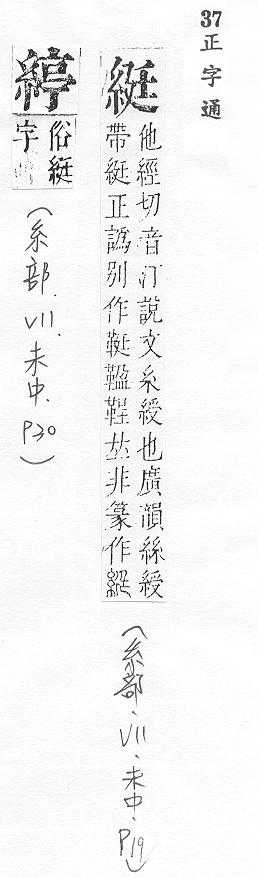 37正字通
綎
他經切音汀說文系綬也廣韻絲綬
帶綎正譌別作鞓䩠鞓𠀤非篆作綎
(糸部、VII、未中、P19)
綍
俗綎
字
(糸部、VII、未中、P30)